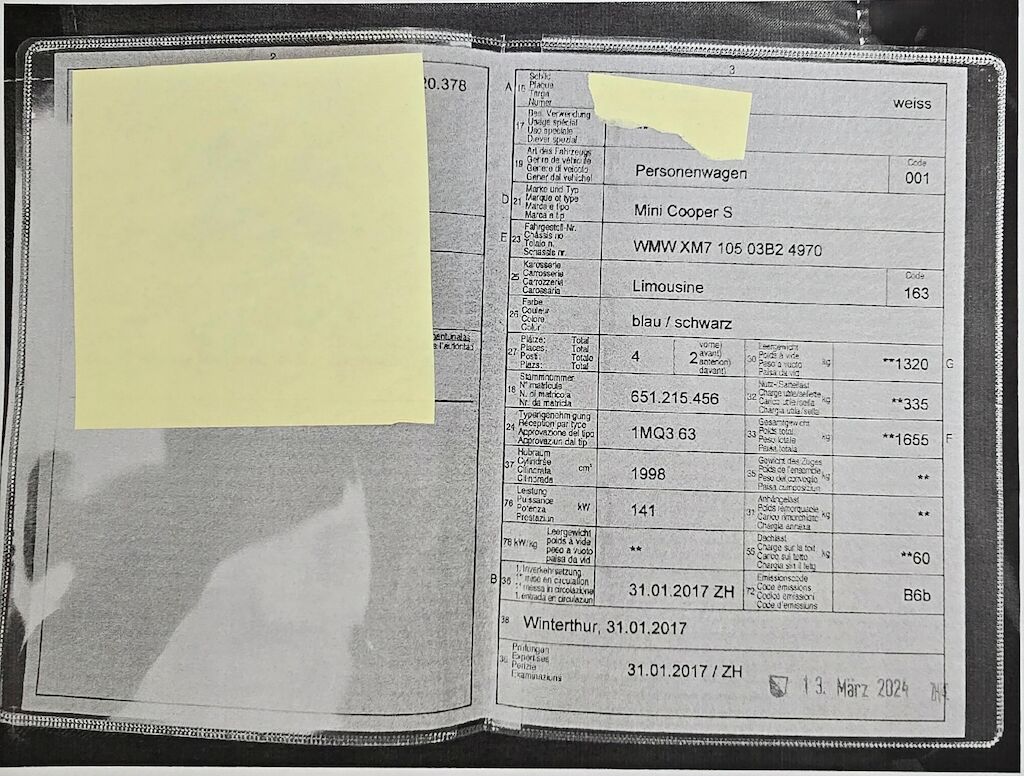 2
20.378
3
A 15 Schild
Plaque
Targa
Numer
weiss
17 Bes. Verwendung
Usage spécial
Uso speciale
Diever spezial
**
19 Art des Fahrzeugs
Genre de véhicule
Genere di veicolo
Gener dal vehichel
Personenwagen
Code
001
D 21 Marke und Typ
Marque et type
Marca e tipo
Marca e tip
Mini Cooper S
E 23 Fahrgestell-Nr.
Châssis no
Telaio n.
Schassis nr.
WMW XM7 105 03B2 4970
25 Karosserie
Carrosserie
Carrozzeria
Carossaria
Limousine
Code
163
26 Farbe
Couleur
Colore
Colur
blau / schwarz
27 Plätze: Total
Places: Total
Posti: Totale
Plazs: Total
4
2
vorne)
avant)
anteriori)
davant)
30 Leergewicht
Poids à vide
Peso a vuoto
Paisa da vid
kg
**1320 G
18 Stammnummer
N° matricule
N. di matricola
Nr. da matricla
651.215.456
32 Nutz-/Sattellast
Charge utile/sellette
Carico utile/sella
Chargia utila/sella
kg
**335
24 Typengenehmigung
Réception par type
Approvazione del tipo
Approvaziun dal tip
1MQ3 63
33 Gesamtgewicht
Poids total
Peso totale
Paisa totala
kg
**1655 F
37 Hubraum
Cylindrée
Cilindrata
Cilindrada
cm³
1998
35 Gewicht des Zuges
Poids de l'ensemble
Peso del convoglio
Paisa cumposiziun
kg
**
76 Leistung
Puissance
Potenza
Prestaziun
kW
141
31 Anhängelast
Poids remorquable
Carico rimorchiato
Chargia annexa
kg
**
78 kW/kg
Leergewicht
poids à vide
peso a vuoto
paisa da vid
**
55 Dachlast
Charge sur le toit
Carico sul tetto
Chargia sin il tetg
kg
**60
B 36 1. Inverkehrsetzung
1re mise en circulation
1a messa in circolazione
1. entrada en circulaziun
31.01.2017 ZH
72 Emissionscode
Code émissions
Codice emissioni
Code d'emissiuns
B6b
38 Winterthur, 31.01.2017
39 Prüfungen
Expertises
Perizie
Examinaziuns
31.01.2017 / ZH
13. März 2024